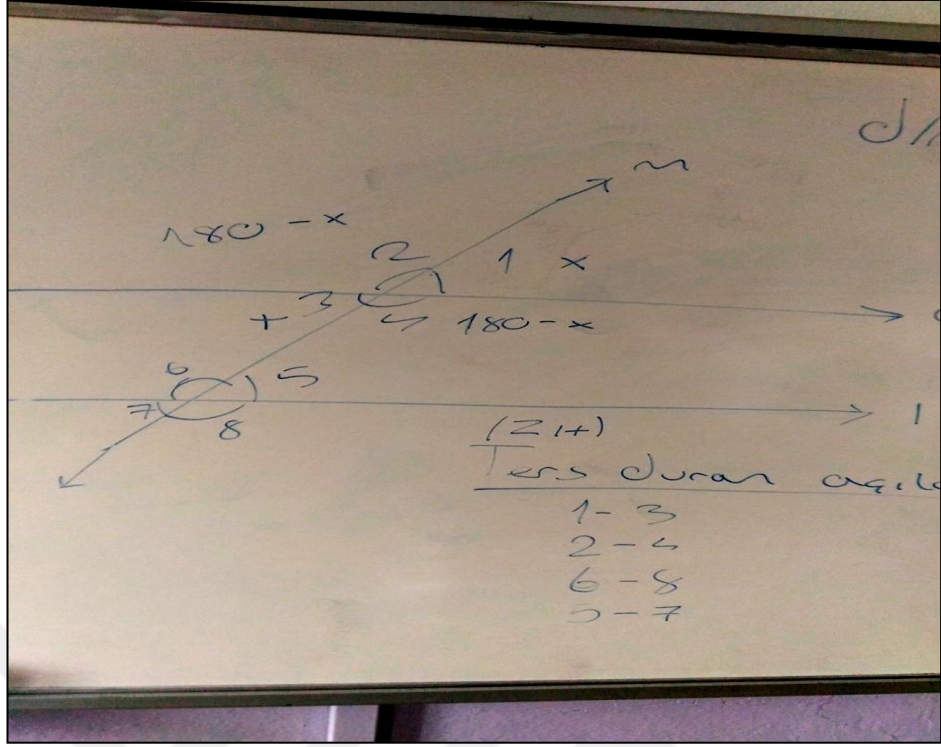 d//
m
180 - x
2
1 x
3
+
4 180-x
6
5
7
8
l
(Zıt)
Ters duran açıla
1- 3
2 - 4
6 - 8
5 - 7